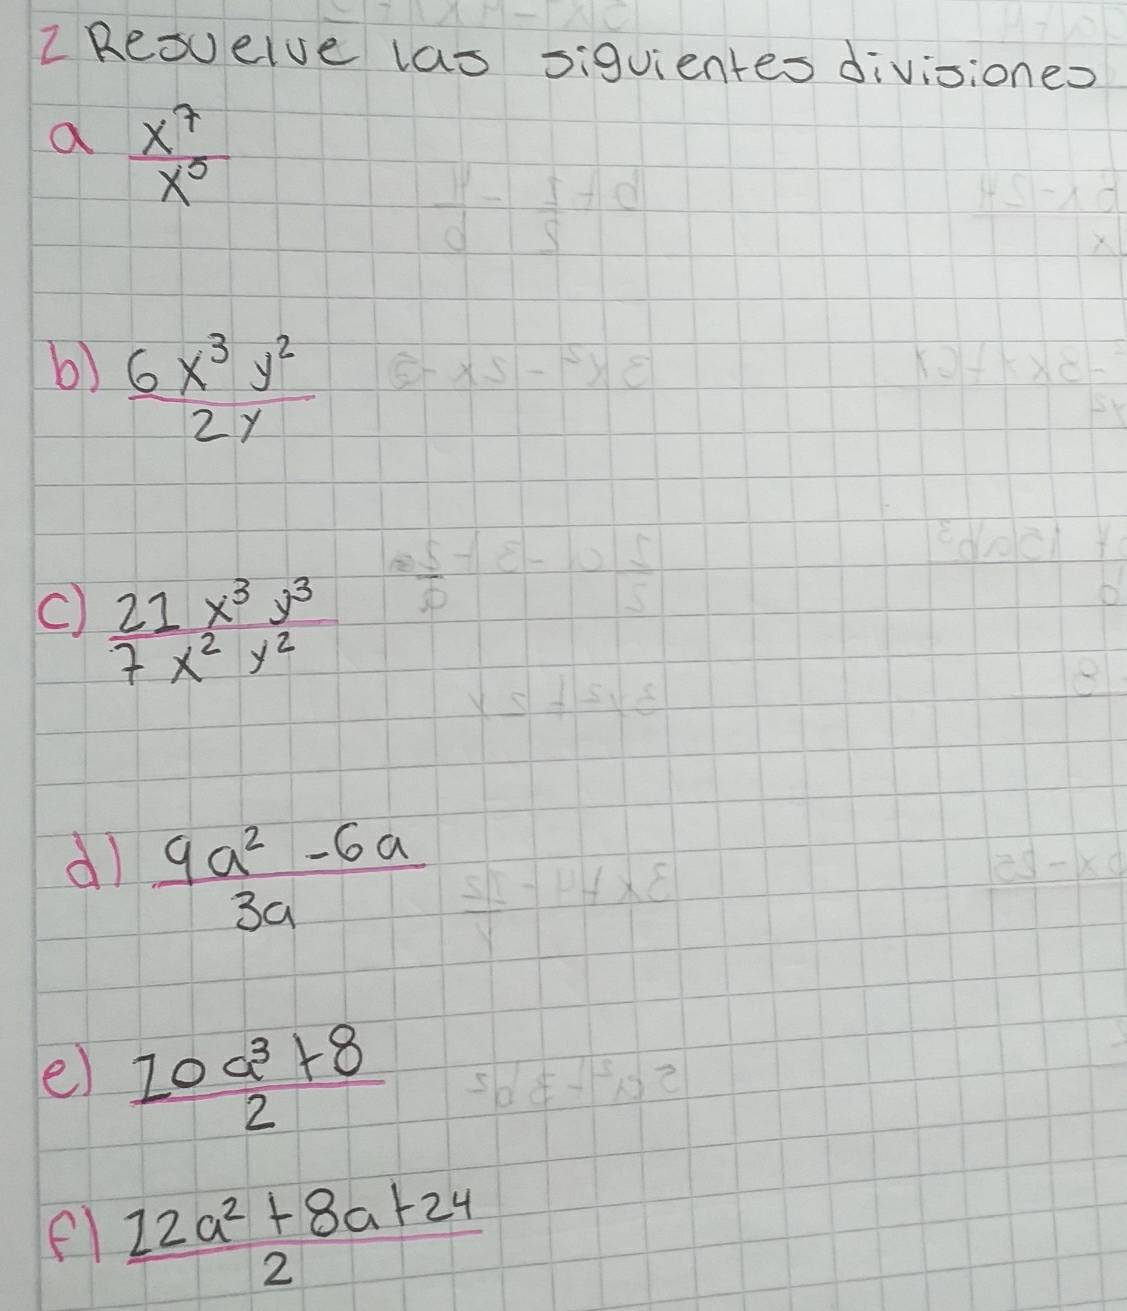 2 Resuelve las siguientes divisiones
a x⁷/x⁵
b) 6x³y²/2y
c) 21x³y³/7x²y²
d) 9a²-6a/3a
e) 10a³+8/2
f) 12a²+8a+24/2